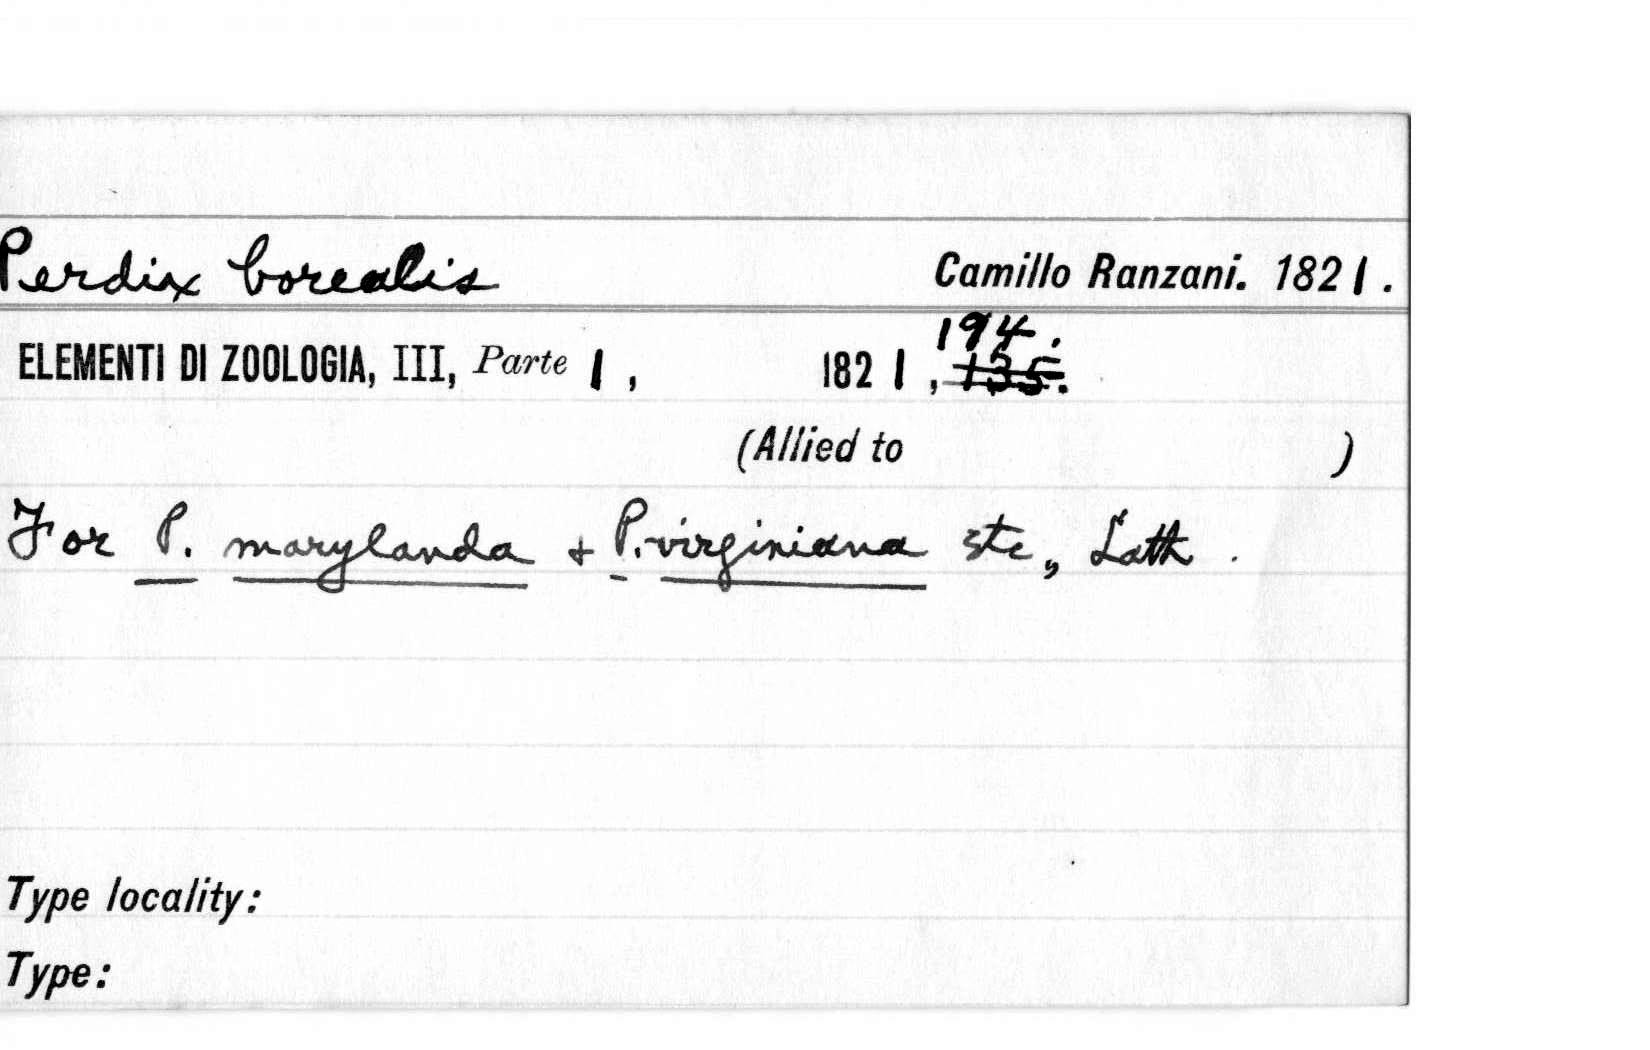 Perdix borealis Camillo Ranzani. 1821.
194.
ELEMENTI DI ZOOLOGIA, III, Parte 1, 1821, 135.
(Allied to )
For P. marylanda & P. virginiana etc, Lath.
Type locality:
Type: